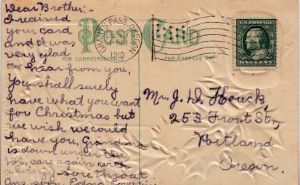 Dear Brother: I
received
your card
and it was
very glad
to hear from you,
You shall surely
have what you want
for Christmas but
we wish we could
have you, Grandma
is down under the
again with
a sore throat
POST CARD
FOR CORRESPONDENCE
GRANTS PASS, OREGON
1910
Mr. J. D. Houck,
253 Front St,
Portland
Oregon.